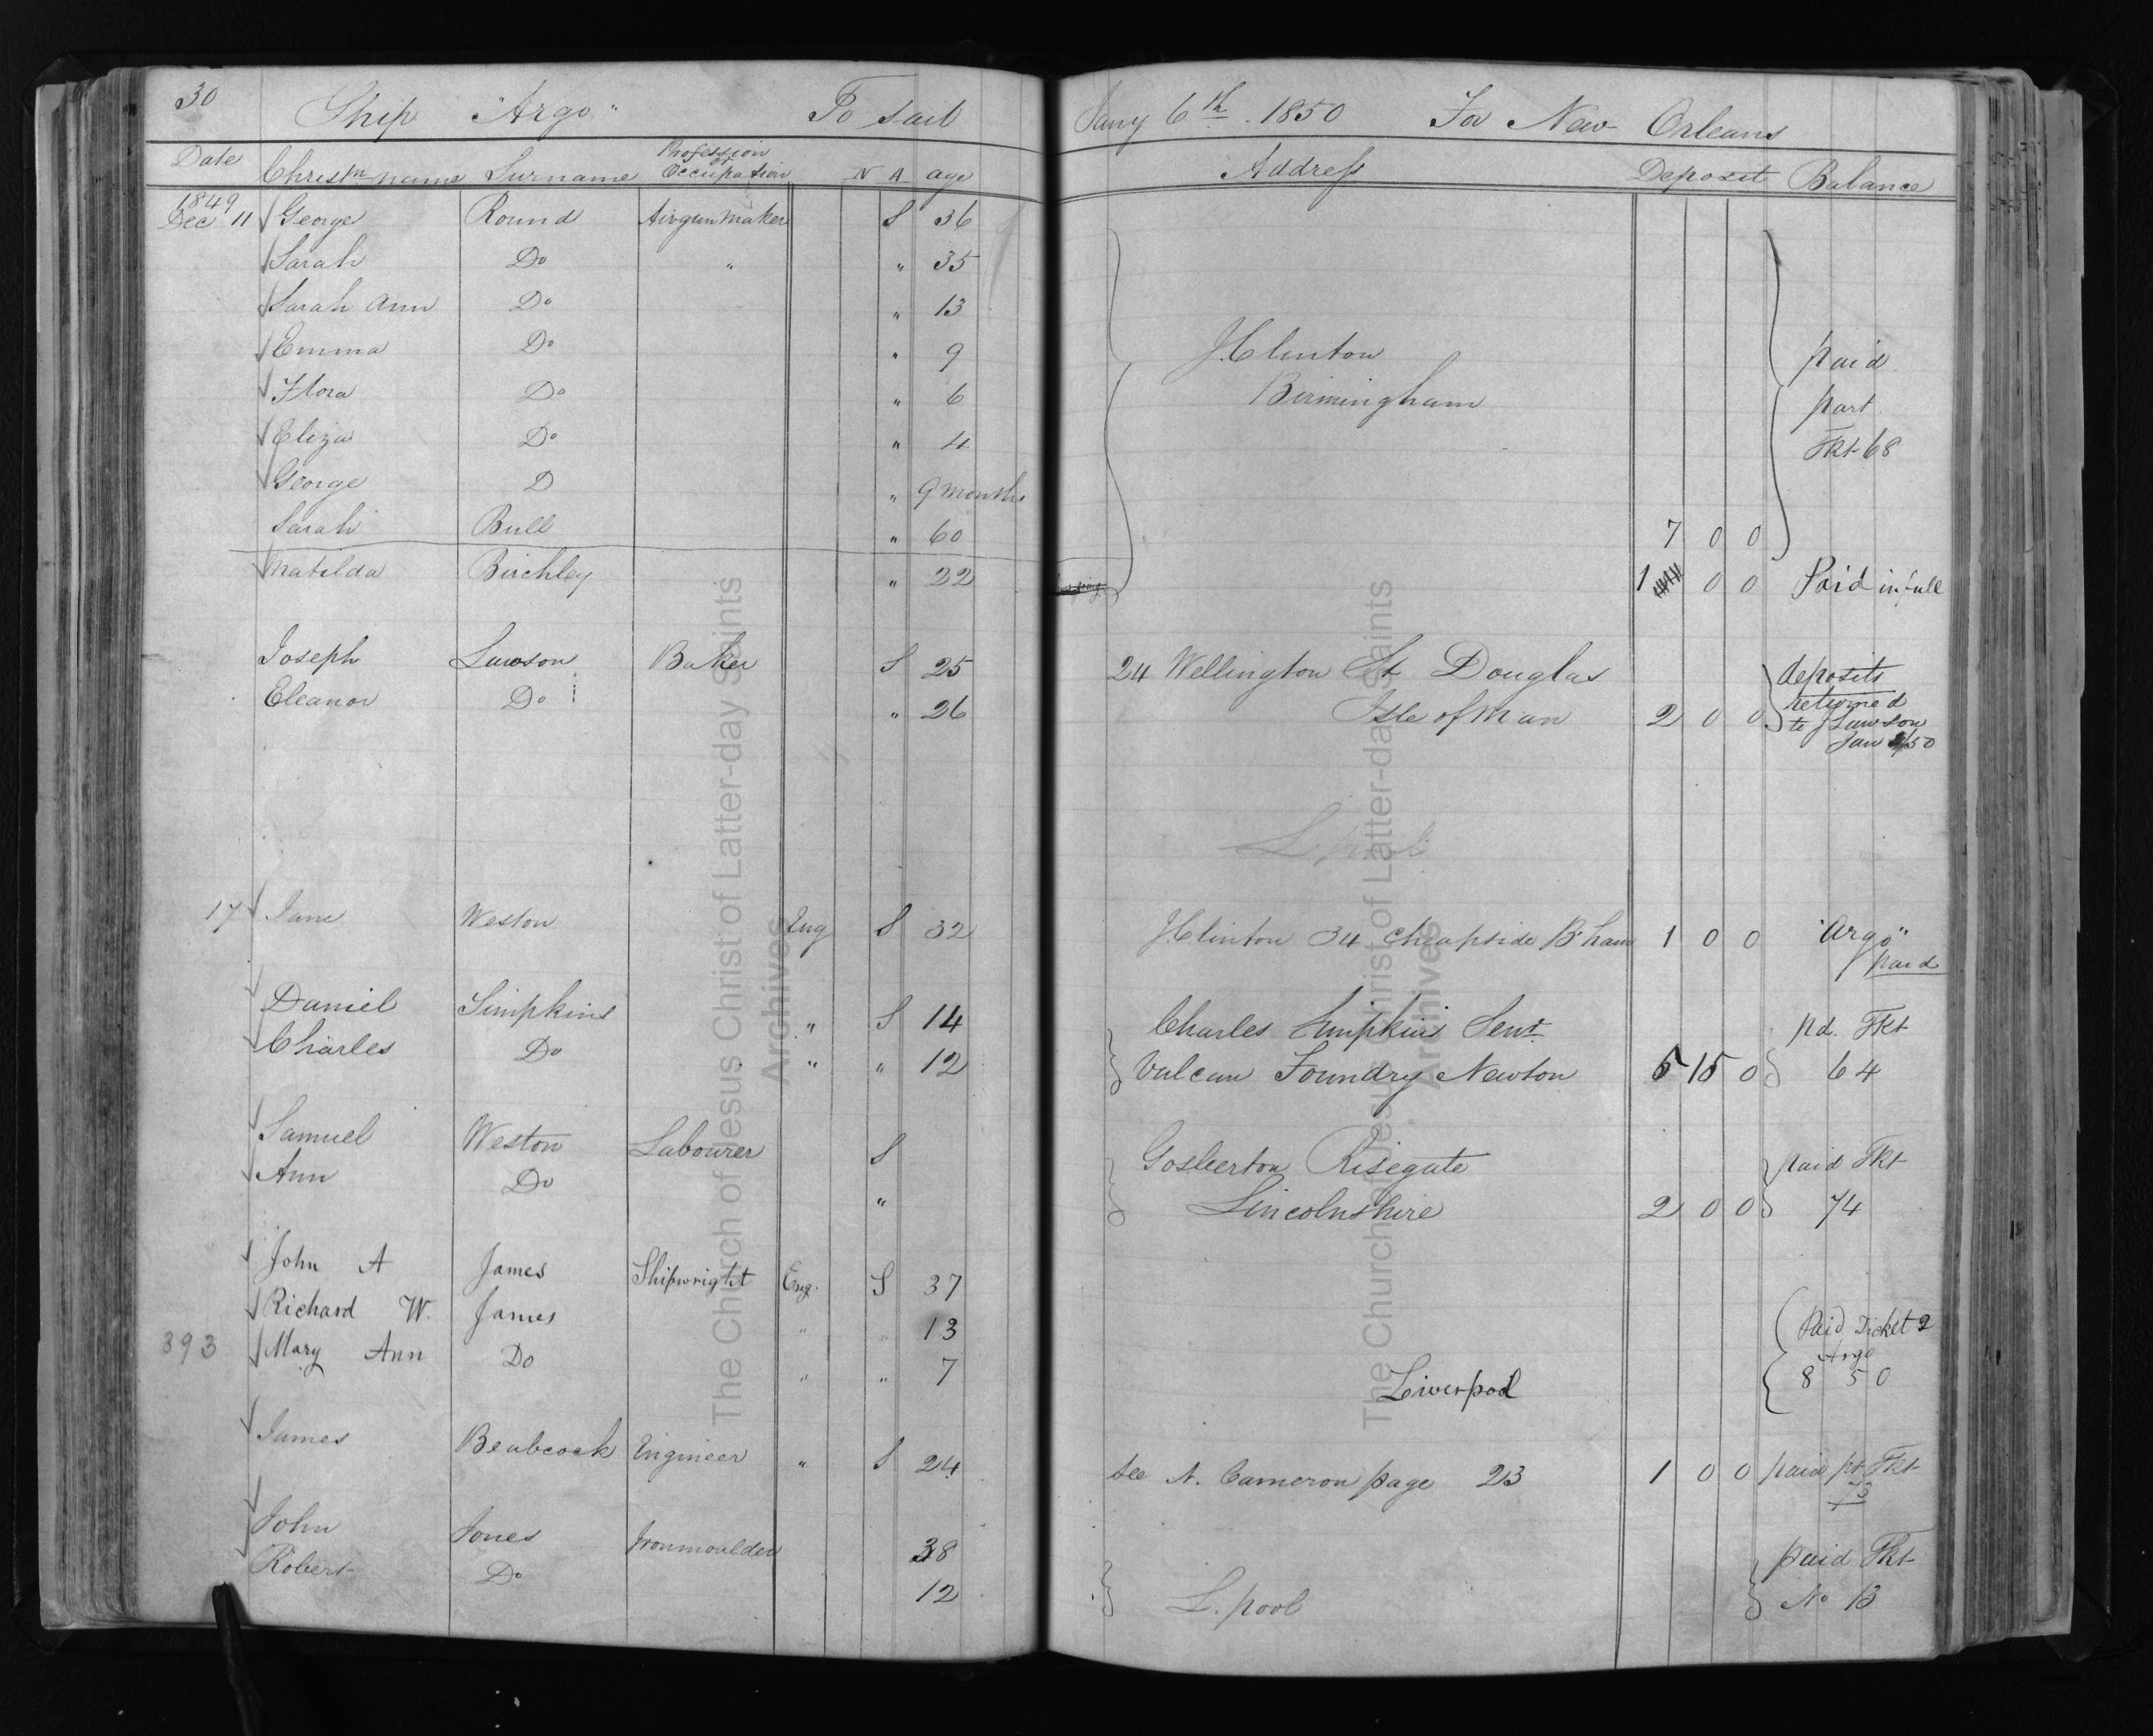 30
Ship "Argo" To sail Jany 6th. 1850 For New Orleans
Date Christn name Surname Profession or Occupation N A age Address Deposit Balance
1849
Dec 11 George Round Airgun Maker S 36
Sarah Do " " 35
Sarah Ann Do " 13
Emma Do " 9 J Clinton paid
Flora Do " 6 Birmingham part
Eliza Do " 4 Tkt 68
George D " 9 months
Sarah Bull " 60 7 0 0
Matilda Birchley " 22 1 0 0 Paid in full
Joseph Lawson Baker S 25 24 Wellington St Douglas deposits
Eleanor Do " 26 Isle of Man 2 0 0 returned
to J Lawson
Jan /50
L.pool
17 Jane Weston Eng S 32 J Clinton 34 Cheapside B'ham 1 0 0 "Argo"
paid
Daniel Simpkins " S 14 Charles Simpkins Senr. pd. Tkt
Charles Do " " 12 Vulcan Foundry Newton 5 15 0 64
Samuel Weston Labourer S Gosberton Risegate paid Tkt
Ann Do " Lincolnshire 2 0 0 74
John A James Shipwright Eng. S 37
Richard W. James " " 13 Paid Ticket 2
393 Mary Ann Do " " 7 Liverpool Argo
8 5 0
James Beabcock Engineer " S 24 see N. Cameron page 23 1 0 0 paid pt Tkt
73
John Jones Ironmoulder 38 paid Tkt
Robert Do 12 L.pool No 13
The Church of Jesus Christ of Latter-day Saints
Archives
The Church of Jesus Christ of Latter-day Saints
Archives